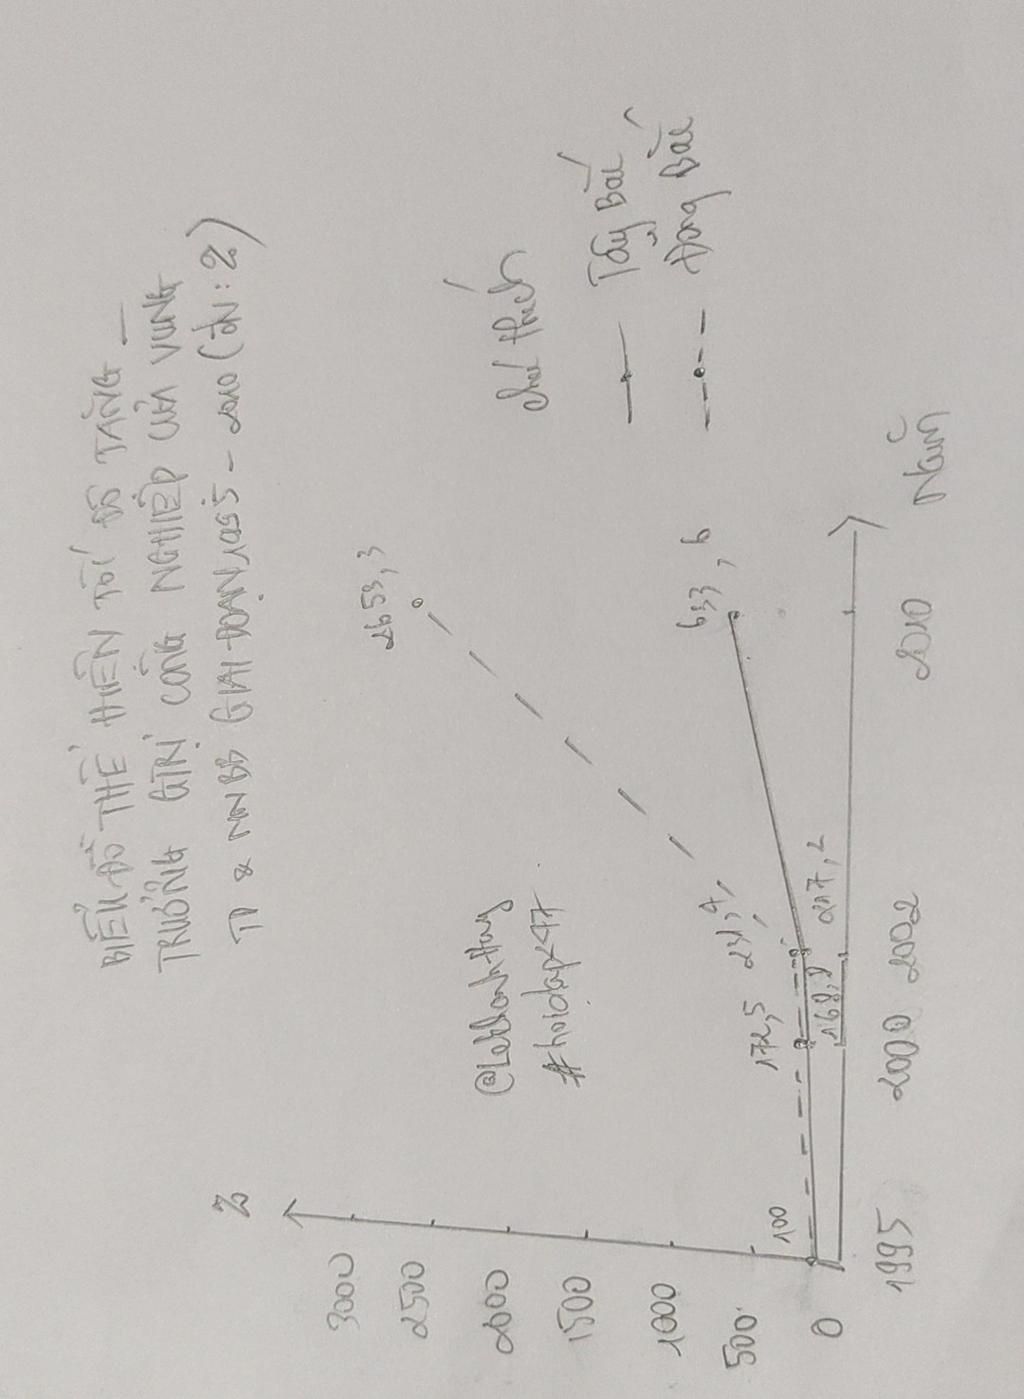 BIỂU ĐỒ THỂ HIỆN TỐC ĐỘ TĂNG
TRƯỞNG GTRỊ CÔNG NGHIỆP CỦA VÙNG
TD & MNBB GIAI ĐOẠN 1995 - 2010 (ĐN : %)
%
3000
2500
2000
1500
1000
500
0
2653,3
633,6
@LeKhanhHuy
#hoidap247
100
172,5
231,4
168,9
217,2
1995
2000
2002
2010
Năm
chú thích
Tây Bắc
Đông Bắc